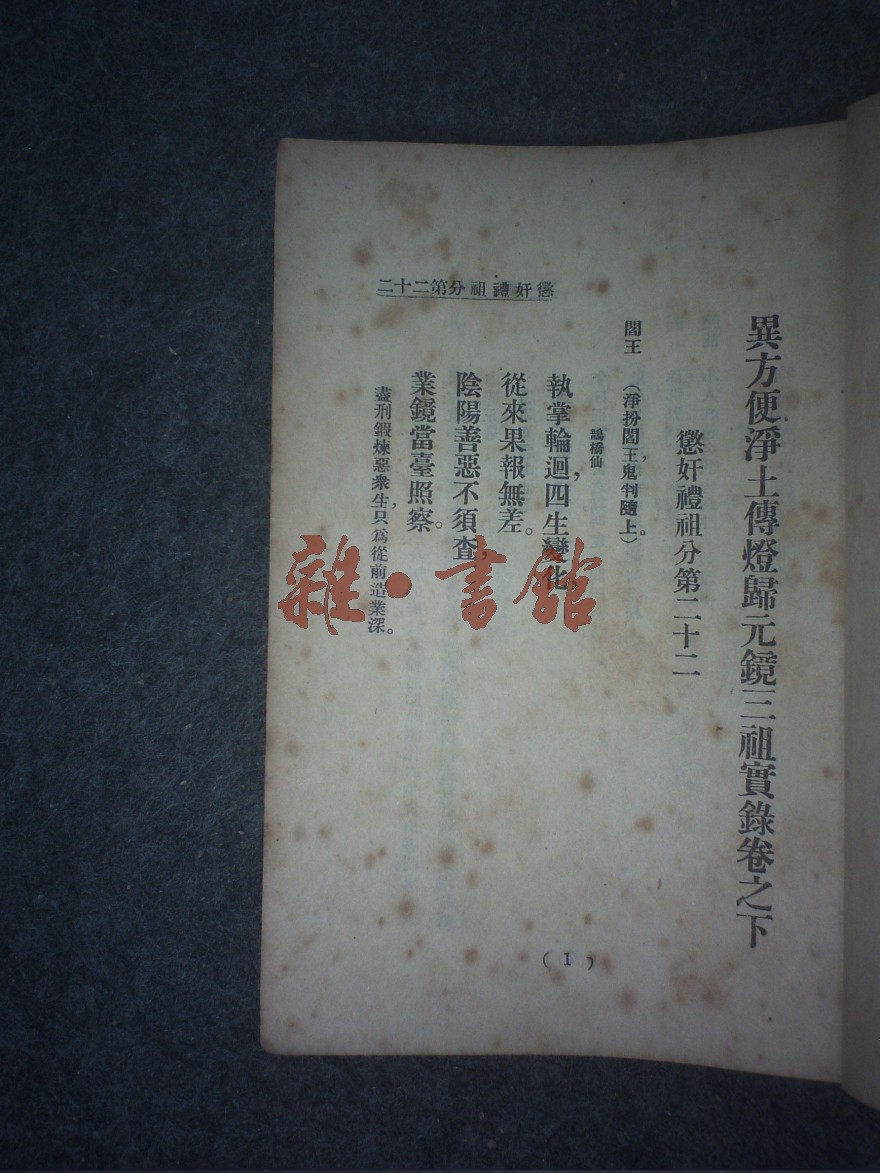 異方便淨土傳燈歸元鏡三祖實錄卷之下
懲奸禮祖分第二十二
閻王　（淨扮閻王，鬼判隨上。）
鵲橋仙
執掌輪迴，四生變化，
從來果報無差。
陰陽善惡不須査，
業鏡當臺照察。
盡刑鍜煉惡衆生，只爲從前造業深。
懲奸禮祖分第二十二
(1)
雜·書館